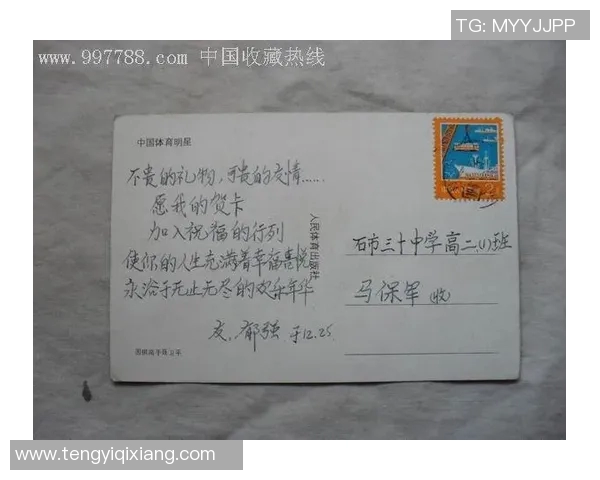 TG: MYYJJPP
www.997788.com 中国收藏热线
中国体育明星
不贵的礼物，可贵的友情……
愿我的贺卡
加入祝福的行列
使你的人生充满着幸福喜悦
永浴于无止无尽的欢乐年华
友、郁强 于12.25
人民体育出版社
石市三十中学高二(1)班
马保军 (收)
www.tengyiqixiang.com